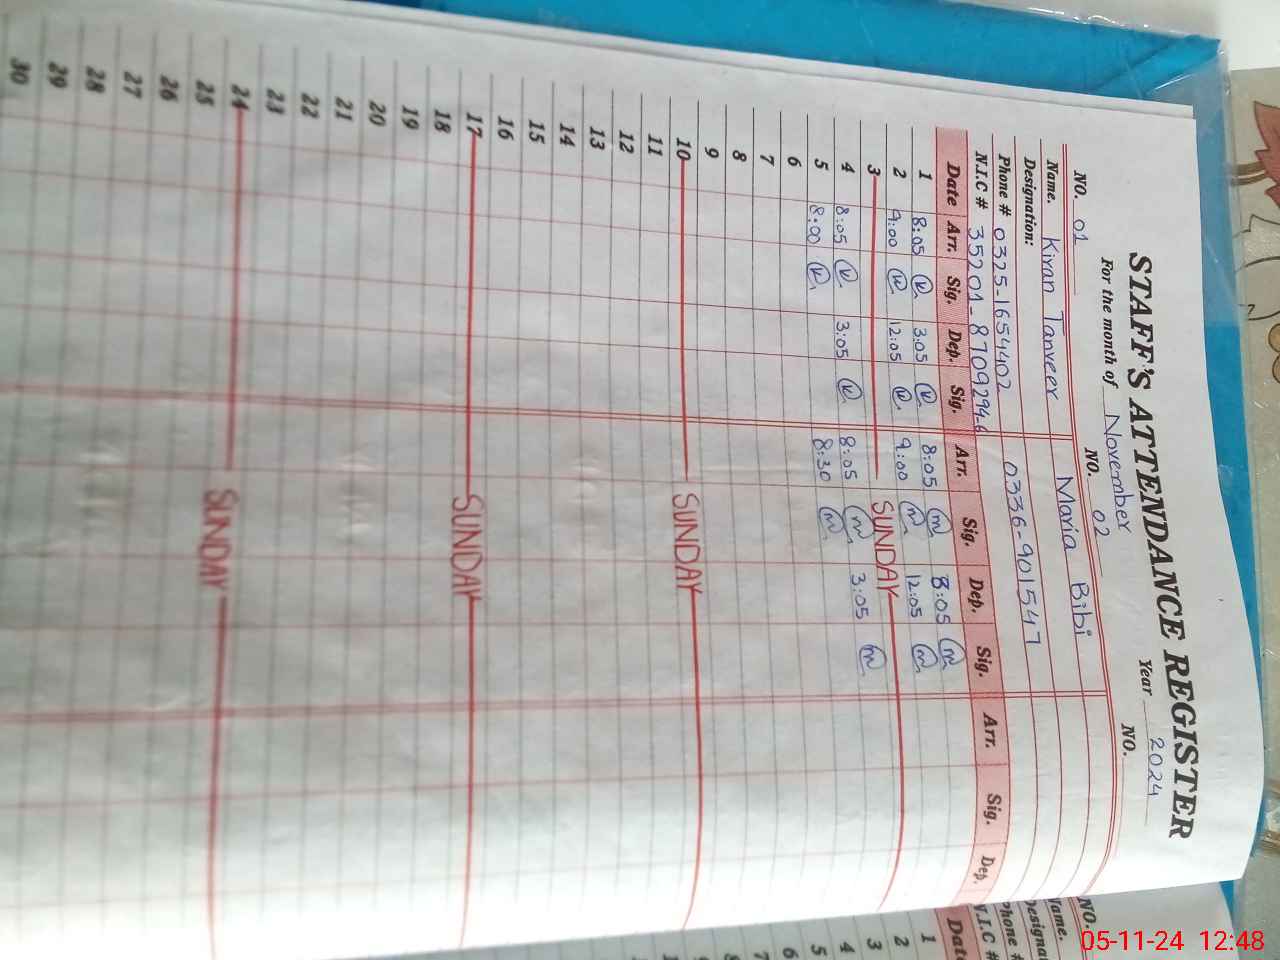 STAFF'S ATTENDANCE REGISTER
For the month of November Year 2024
NO. 01 NO. 02 NO.
Name. Kiran Tanveer Maria Bibi
Designation:
Phone # 0325-1654402 0336-901547
N.I.C # 35201-8709294-6
Date Arr. Sig. Dep. Sig. Arr. Sig. Dep. Sig. Arr. Sig. Dep.
1 8:05 K 3:05 K 8:05 m 3:05 m
2 9:00 K 12:05 K 9:00 m 12:05 m
3 SUNDAY
4 8:05 K 3:05 K 8:05 m 3:05 m
5 8:00 K 8:30 m
6
7
8
9
10 SUNDAY
11
12
13
14
15
16
17 SUNDAY
18
19
20
21
22
23
24 SUNDAY
25
26
27
28
29
30
NO.
Name.
Designa
Phone #
N.I.C #
Date
1
2
3
4
5
6
7
05-11-24 12:48